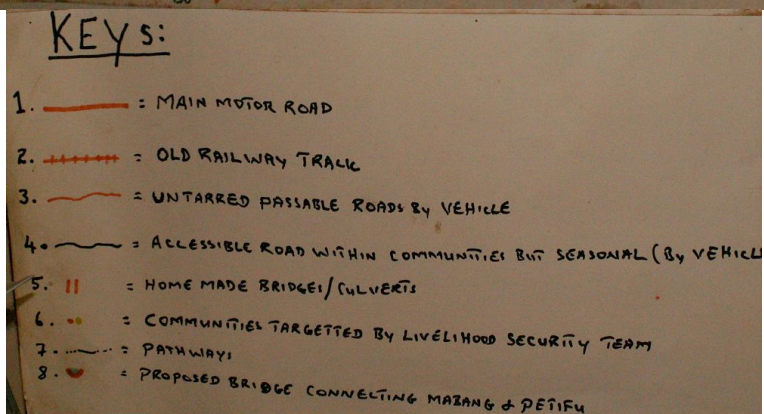 KEYS:
1. = MAIN MOTOR ROAD
2. = OLD RAILWAY TRACK
3. = UNTARRED PASSABLE ROADS By VEHICLE
4. = ACCESSIBLE ROAD WITHIN COMMUNITIES BUT SEASONAL (By VEHICLE
5. = HOME MADE BRIDGES/CULVERTS
6. = COMMUNITIES TARGETTED By LIVELIHOOD SECURITY TEAM
7. = PATHWAYS
8. = PROPOSED BRIDGE CONNECTING MABANG & PETIFU